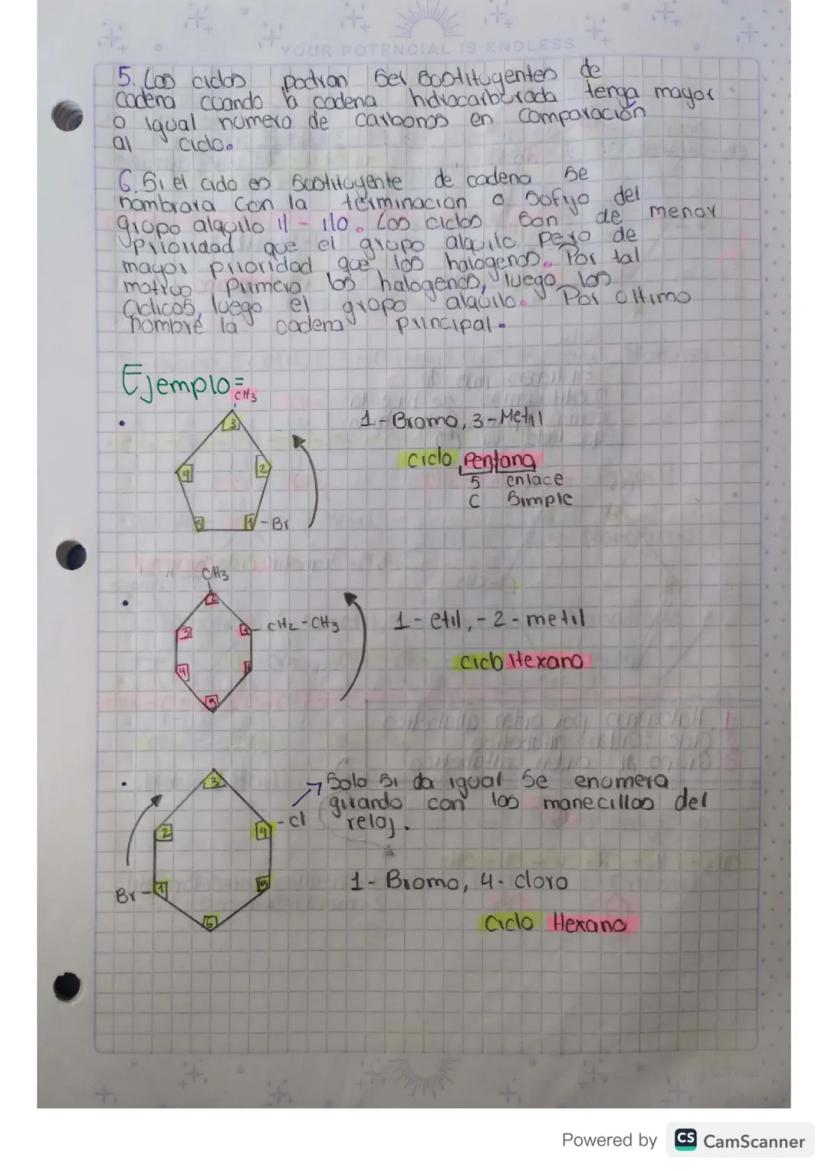 YOUR POTENCIAL IS ENDLESS
5. Los ciclos podran ser sostitugentes de
cadena cuando la cadena hidrocarburada tenga mayor
o igual numero de carbonos en comparación
al ciclo.
6. Si el ciclo es sostituyente de cadena se
nombrara con la terminacion o sofijo del
grupo alquilo il - ilo. Los ciclos son de menor
Prioridad que el grupo alquilo pero de
mayor prioridad que los halogenos. Por tal
motivo primero los halogenos, luego los
Ciclicos, luego el gropo alquilo. Por oltimo
nombre la cadena principal.
Ejemplo=
CH3
3
4
2
5
1
-Br
1-Bromo, 3-Metil
ciclo Pentano
5 enlace
C Simple
CH3
2
3
1
-CH2-CH3
4
6
5
1-etil,-2-metil
ciclo Hexano
3
2
4
-cl
Br-
1
5
6
Solo si da igual se enomera
girando con las manecillas del
reloj.
1-Bromo, 4-cloro
ciclo Hexano
Powered by CS CamScanner